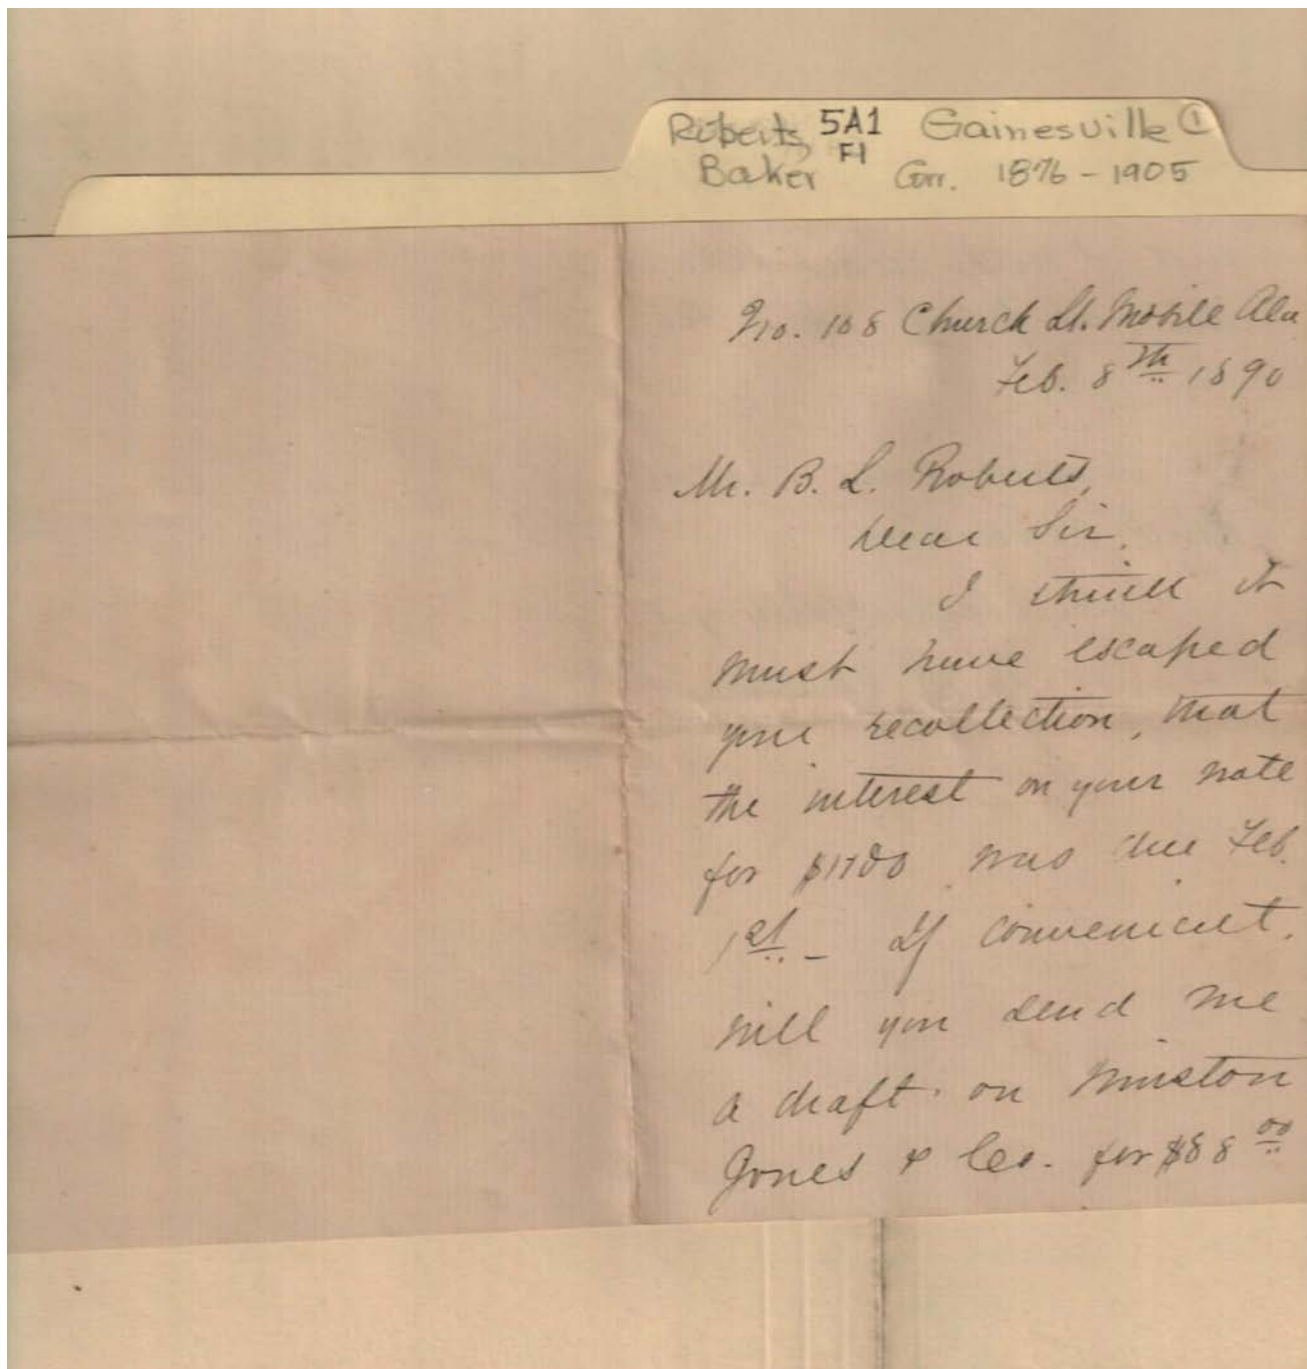 Roberts, 5A1 Gainesville ①
Baker F1 Corr. 1876 - 1905
No. 108 Church St. Mobile Ala
Feb. 8th 1890
Mr. B. L. Roberts,
Dear Sir,
I think it
must have escaped
your recollection, that
the interest on your note
for was due Feb.
1st. - If convenient,
will you send me
a draft on Winston
Jones & Co. for $88 00